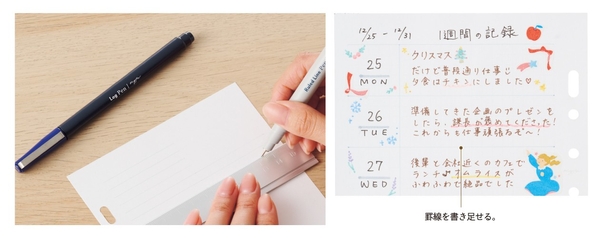 Log Pen
Ruled Line Pen
12/25 - 12/31
1週間の記録
25
MON
クリスマス
だけど普段通り仕事
夕食はチキンにしました♡
26
TUE
準備してきた企画のプレゼンを
したら、課長が褒めてくださった!
これからも仕事頑張るぞ〜!
27
WED
後輩と会社近くのカフェで
ランチ♪オムライスが
ふわふわで絶品でした
罫線を書き足せる。